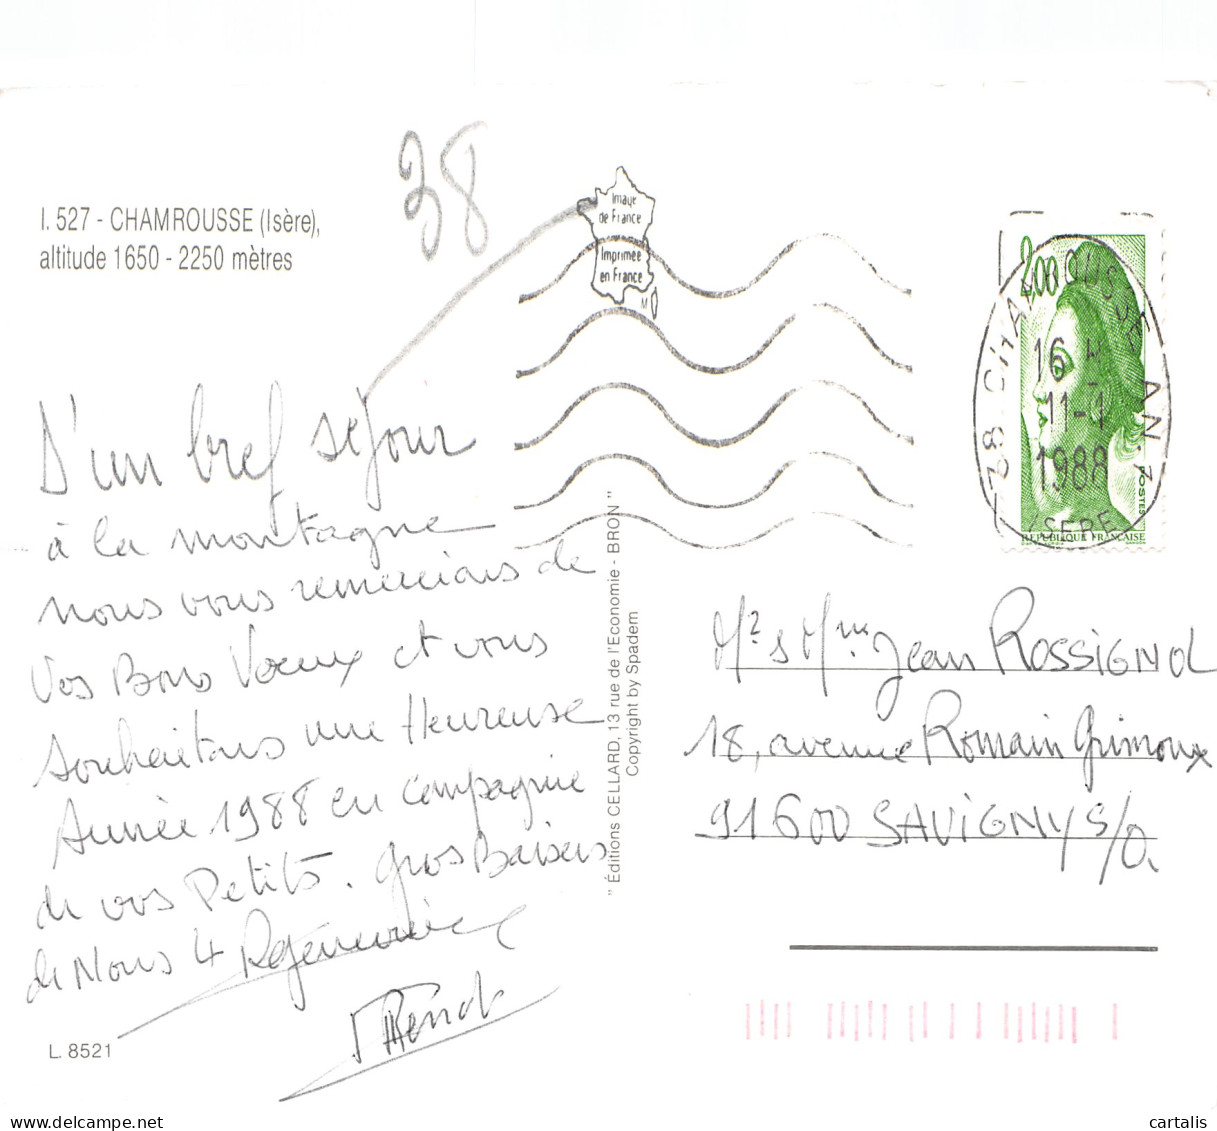 38
I. 527 - CHAMROUSSE (Isère),
altitude 1650 - 2250 mètres
Image
de France
Imprimée
en France
D'un bref séjour
à la montagne
nous vous remercions de
Vos Bons Voeux et vous
souhaitons une Heureuse
Année 1988 en compagnie
de vos Petits. Gros Baisers
de Nous 4
L. 8521
" Éditions CELLARD, 13 rue de l'Economie - BRON "
Copyright by Spadem
2,00
38 CHAMROUSSE AN. 1
16 H
11-1
1988
ISERE
POSTES
REPUBLIQUE FRANÇAISE
Mr & Mme Jean ROSSIGNOL
18, avenue Romain Grimoux
91600 SAVIGNY S/O.
cartalis
delcampe.net